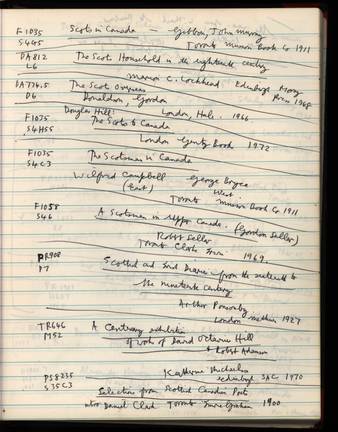 F1035 Scots in Canada — Gibbon, John Murray
S4G5 Toronto Musson Book Co 1911
DA812 The Scot Household in the eighteenth century
L6
Marion C. Lochhead Edinburgh Moray
Press 1948
DA774.5 The Scot Overseas
D6 Donaldson, Gordon London, Hale. 1966
Douglas Hill:
F1035 The Scots to Canada
S4H55
London Gentry Books 1972
F1035 The Scotsman in Canada
S4C3
Wilfred Campbell George Bryce
(East) West
Toronto Musson Book Co 1911
F1058 A Scotsman in Upper Canada. (Gordon Sellar)
S46
Robt Sellar
Toronto Clarke Irwin 1969.
PR908 Scottish and Irish Diaries from the sixteenth to
P7 the nineteenth century
Arthur Ponsonby
London Methuen 1927
TR646 A Centenary exhibition
M52 of work of David Octavius Hill
& Robt Adamson
Katherine Michaelson
Edinburgh SAC 1970
PS8235
S35C3 Selections from Scottish Canadian Poets
intro Daniel Clark Toronto 1900